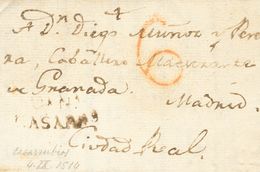 A Dn. Diego Muñoz y Pere
na, Caballero Maestrante
de Granada.
6
Madrid.
Ciudad Real.
casarrubios
4-IX-1814